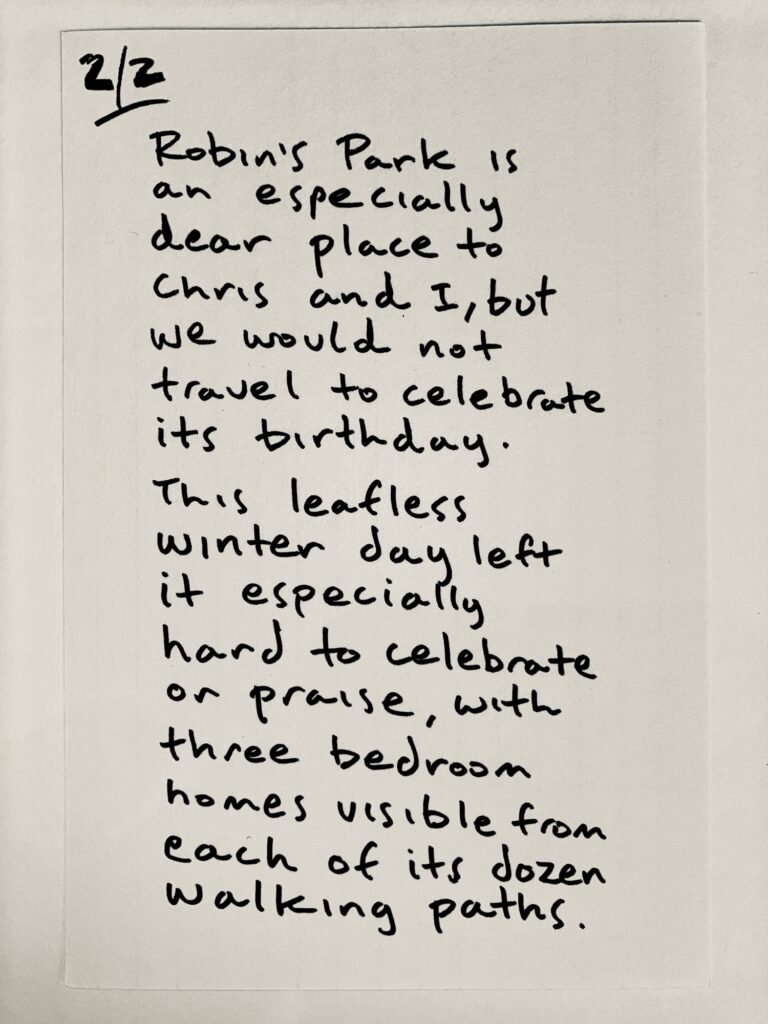 2/2
Robin's Park is
an especially
dear place to
Chris and I, but
we would not
travel to celebrate
its birthday.
This leafless
winter day left
it especially
hard to celebrate
or praise, with
three bedroom
homes visible from
each of its dozen
walking paths.